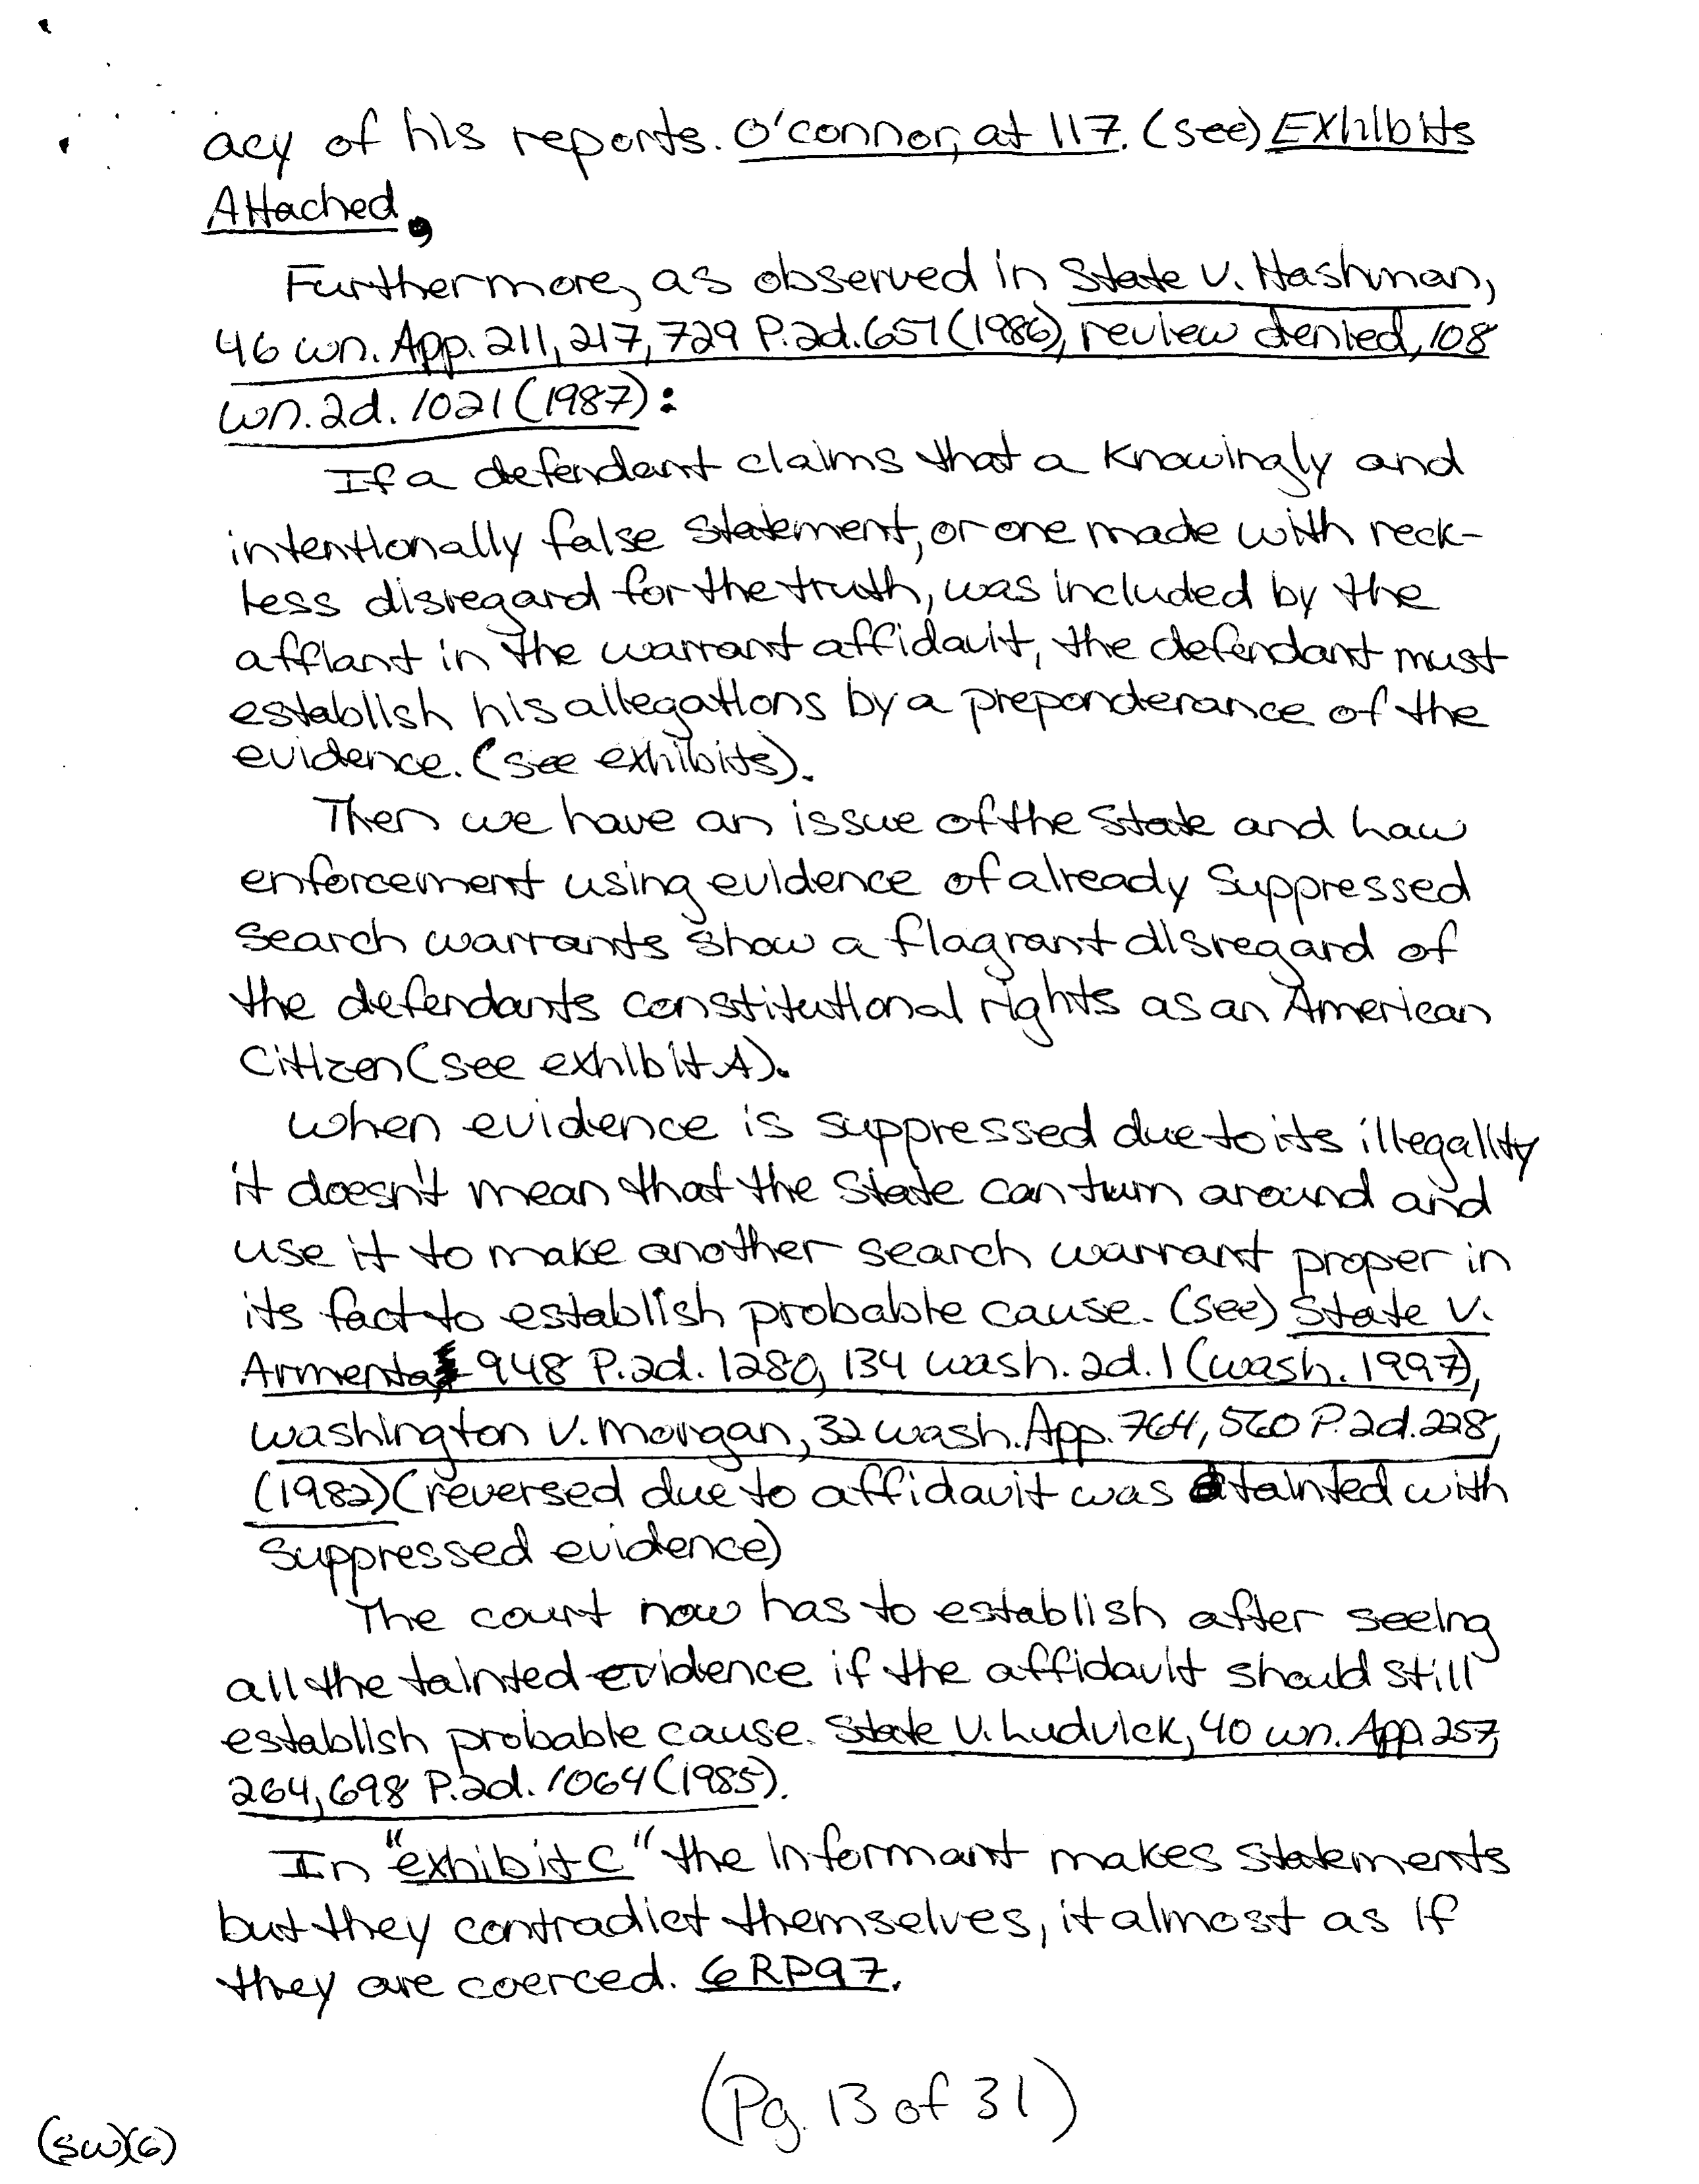 acy of his reports. O'connor, at 117. (see) Exhibits
Attached,
Furthermore, as observed in State v. Hashman,
46 wn. App. 211, 217, 729 P.2d. 651 (1986), review denied, 108
wn. 2d. 1021 (1987):
If a defendant claims that a knowingly and
intentionally false statement, or one made with reck-
less disregard for the truth, was included by the
affiant in the warrant affidavit, the defendant must
establish his allegations by a preponderance of the
evidence. (see exhibits).
Then we have an issue of the State and Law
enforcement using evidence of already suppressed
search warrants show a flagrant disregard of
the defendants constitutional rights as an American
Citizen (see exhibit A).
When evidence is suppressed due to its illegality
it doesn't mean that the State can turn around and
use it to make another search warrant proper in
its fact to establish probable cause. (see) State v.
Armenta, 948 P.2d. 1280, 134 wash. 2d. 1 (wash. 1997),
Washington v. Morgan, 32 wash. App. 764, 560 P.2d. 228,
(1982) (reversed due to affidavit was tainted with
suppressed evidence)
The court now has to establish after seeing
all the tainted evidence if the affidavit should still
establish probable cause. State v. Ludvick, 40 wn. App. 257,
264, 698 P.2d. 1064 (1985).
In "exhibit C" the informant makes statements
but they contradict themselves, it almost as if
they are coerced. 6RP97.
(Pg. 13 of 31)
(SW)(6)